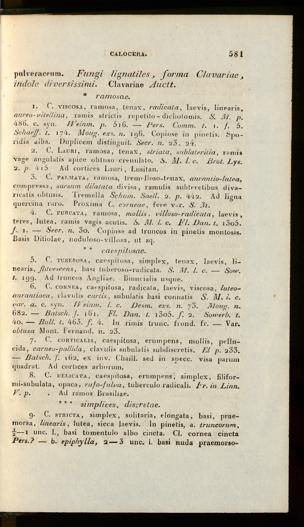 CALOCERA. 581
pulveraceum. Fungi lignatiles, forma Clavariae,
indole diversissimi. Clavariae Auctt.
* ramosae.
1. C. VISCOSA, ramosa, tenax, radicata, laevis, linearis,
aureo-vitellina, ramis strictis repetito-dichotomis. S. M. p.
486. c. syn. Weinm. p. 516. — Pers. Comm. t. 1. f. 5.
Schaeff. t. 174. Moug. exs. n. 196. Copiose in pinetis. Spo-
ridia alba. Duplicem distinguit. Secr. n. 23. 24.
2. C. LAURI, ramosa, tenax, striata, sublateritia, ramis
vage angulatis apice obtuso crenulato. S. M. l. c. Brot. Lys.
2. p. 415 Ad cortices Lauri, Lusitan.
3. C. PALMATA, ramosa, trem.llono-tenax, aurantio-lutea,
compressa, sursum dilatata divisa, ramulis subteretibus diva-
ricatis obtusis. Tremella Schum. Saell. 2. p. 442. Ad ligna
quercina raro. Proxima C. corneae, fere v.v. S. M.
4. C. FURCATA, ramosa, mollis, villoso-radicata, laevis,
teres, lutea, ramis vagis acutis. S. M. l. c. Fl. Dan. t. 1305.
f. 1. — Secr. n. 30. Copiose ad truncos in pinetis montosis.
Basis Ditiolae, noduloso-villosa, ut aq.
** caespitosae.
5. C. TUBEROSA, caespitosa, simplex, tenax, laevis, li-
nearis, flavescens, basi tuberoso-radicata. S. M. l. c. — Sow.
t. 199. Ad truncos Angliae. Biuncialis usque.
6. C. CORNEA, caespitosa, radicata, laevis, viscosa, luteo-
aurantiaca, clavulis curtis, subulatis basi connatis S. M. l. c.
var. a. c. syn. Weinm. l. c. Desm. exs. n. 73. Moug. n.
682. — Batsch f. 161. Fl. Dan. t. 1305. f. 2. Sowerb. t.
40. — Bull. t. 463. f. 4. In rimis trunc. frond. fr. — Var.
obtusa Mont. Fernand. n. 23.
7. C. CORTICALIS, caespitosa, erumpens, mollis, pellu-
cida, carneo-pallida, clavulis subulatis subdiscretis. El p. 233.
— Batsch. f. 162, ex inv. Chaill. sed in specc. visa parum
quadrat. Ad cortices arborum.
8. C. DELICATA, caespitosa, erumpens, simplex, filifor-
mi-subulata, opaca, rufo-fulva, tuberculo radicali. Fr. in Linn.
V. p. . Ad ramos Brasiliae.
*** simplices, discretae.
9. C. STRICTA, simplex, solitaria, elongata, basi, prae-
morsa, linearis, lutea, sicca laevis. In pinetis, a. truncorum,
½—1 unc. l., basi tomentulo albo cincta. Cl. cornea cincta
Pers.? — b. epiphylla, 2—3 unc. l. basi nuda praemorso-